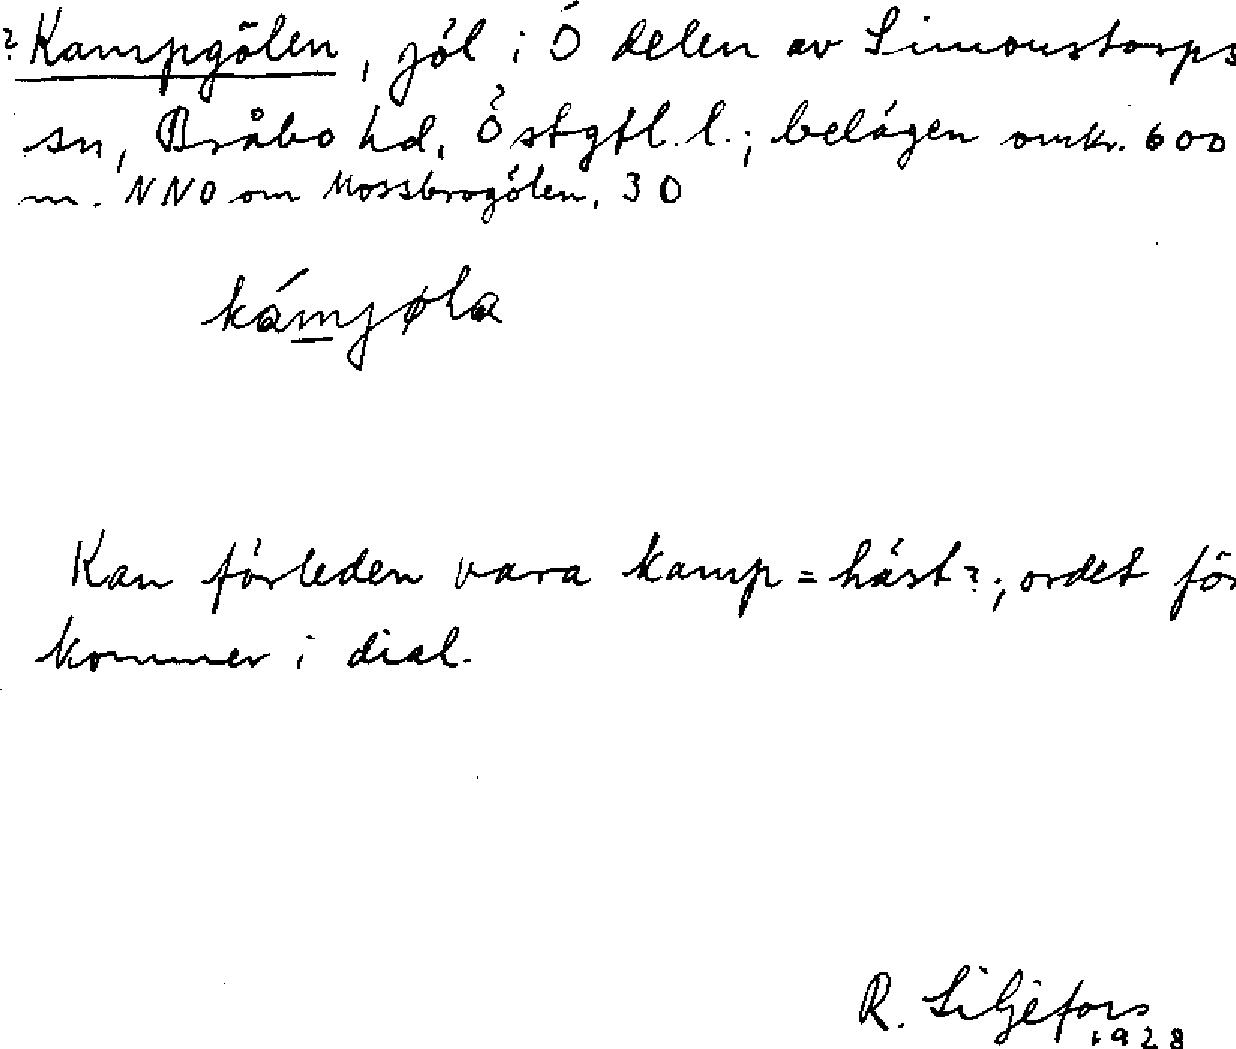 ? Kampgölen, göl i Ö delen av Simonstorps
sn, Bråbo hd, Östgtl. l.; belägen omkr. 600
m. NNO om Mossbrogölen. 30
kámjøla
Kan förleden vara kamp = häst?; ordet för
kommer i dial.
R. Liljefors
1928